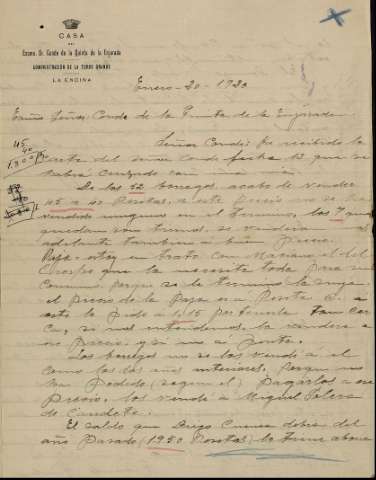 CASA
DEL
Excmo. Sr. Conde de la Quinta de la Enjarada
ADMINISTRACIÓN DE LA TORRE GRANDE
LA ENCINA
Enero-20-1920
Señor Conde de la Quinta de la Enjarada
Señor Conde: He recibido la
del señor conde fecha 13 que se
habrá cruzado con una mia
45
40
1800
De los 52 borregos acabo de vender
45 a 40 Pesetas, a este precio no se ha
vendido ninguno en el termino, los 7 que
quedan son se venderan
adelante tambien a buen precio.
Paja-estoy en trato con Mariano el del
que la necesita toda para su
consumo porque se le termino la suya.
el precio de la Paja es a Peseta @. a
este le pido a 1,15 por tenerla tan cer
ca, si nos entendemos la vendere a
ese precio y si no a peseta.
Los borregos no se los vendi a el
como los años anteriores, porque no
ha podido (segun el) pagarlos a ese
Precio, los vendi a Miguel
de Caudete.
El saldo que Diego Cuenca debia del
año Pasado (1950 Pesetas) lo tiene